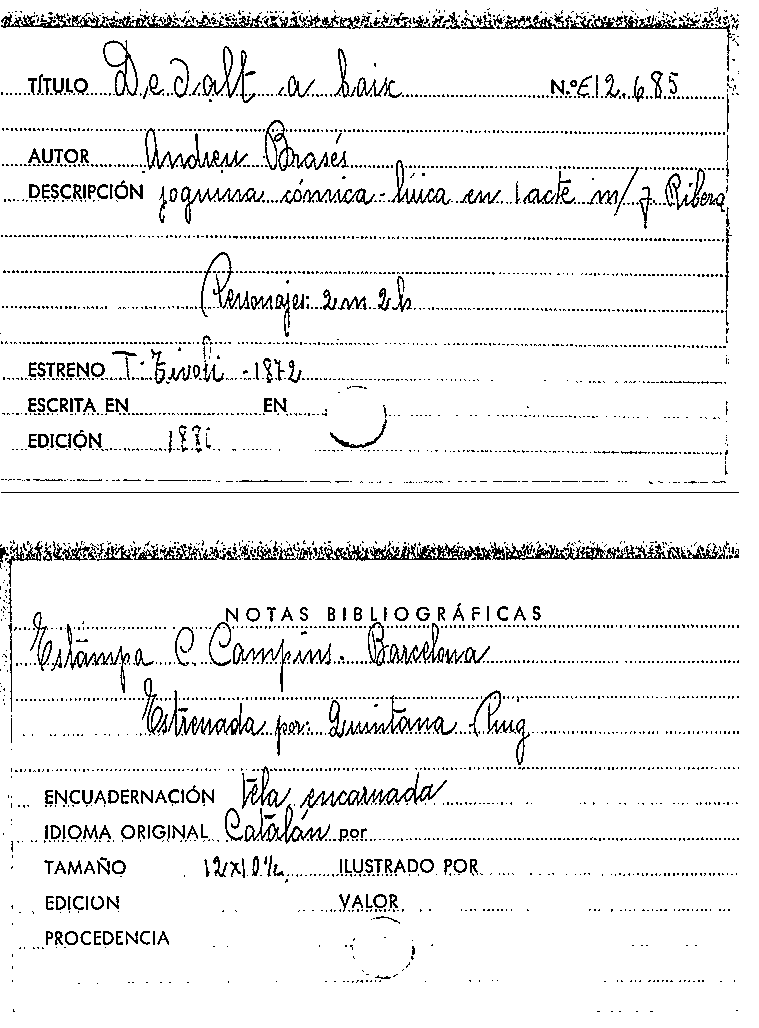 TÍTULO De dalt a baix N.º E12.685
AUTOR Andreu Brasés
DESCRIPCIÓN joguina cómica-lírica en 1 acte m/ J Ribera
Personajes: 2 m 2 h
ESTRENO T. Tívoli - 1872
ESCRITA EN EN
EDICIÓN 1881
NOTAS BIBLIOGRÁFICAS
Estampa C. Campins. Barcelona
Estrenada por: Quintana Puig
ENCUADERNACIÓN tela encarnada
IDIOMA ORIGINAL Catalán por
TAMAÑO 12x10½ ILUSTRADO POR
EDICION VALOR
PROCEDENCIA